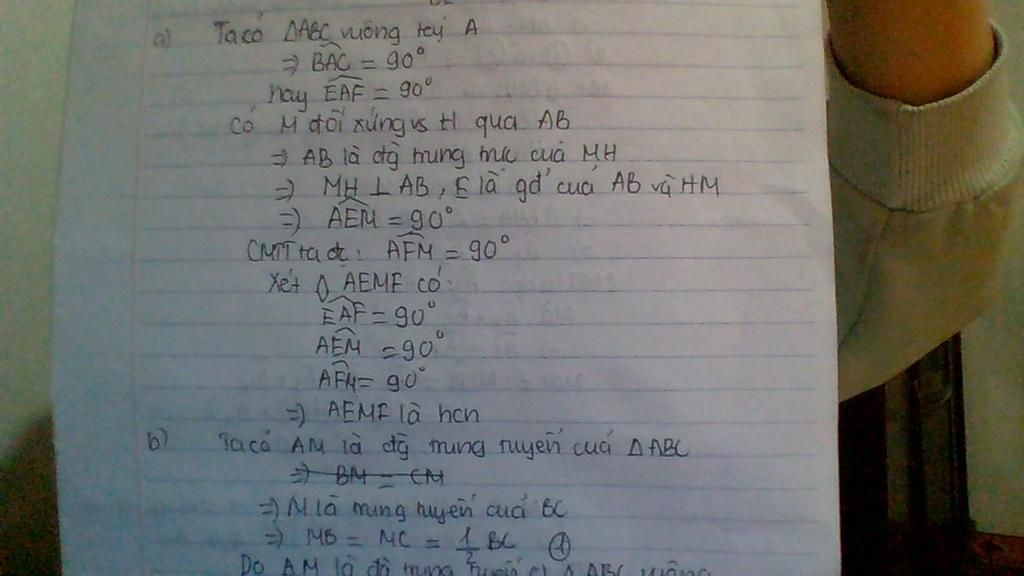 a) Ta có ΔABC vuông tại A
⇒ BAC = 90°
hay EAF = 90°
Có M đối xứng vs H qua AB
⇒ AB là đg trung trực của MH
⇒ MH ⊥ AB, E là gđ' của AB và HM
⇒ AEM = 90°
CMTT ta đc: AFM = 90°
Xét ◊ AEMF có
EAF = 90°
AEM = 90°
AFM = 90°
⇒ AEMF là hcn
b) Ta có AM là đg trung tuyến của ΔABC
⇒ BM = CM
⇒ M là trung tuyến của BC
⇒ MB = MC = 1/2 BC ①
Do AM là đg trung tuyến ΔABC vuông